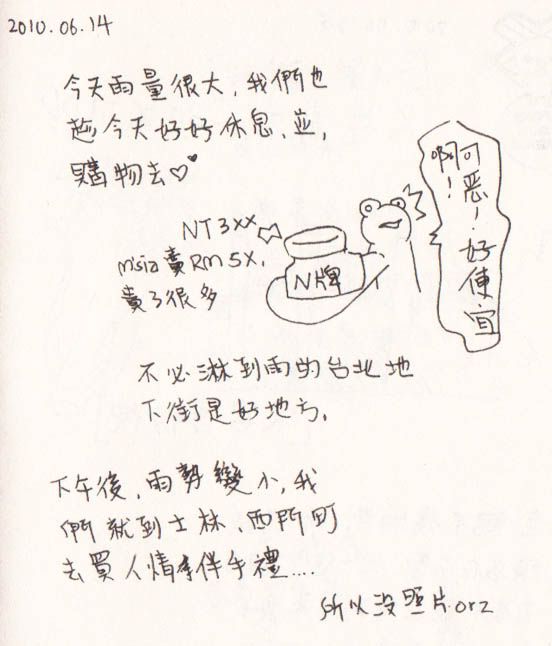 2010.06.14
今天雨量很大,我們也
趁今天好好休息,並,
購物去♡♥
啊! 可惡!好便宜
NT 3xx
m'sia 賣 Rm 5x,
貴了很多
N牌
不必淋到雨的台北地
下街是好地方。
下午後,雨勢變小,我
們就到士林、西門町
去買人情伴手禮....
所以沒照片.orz